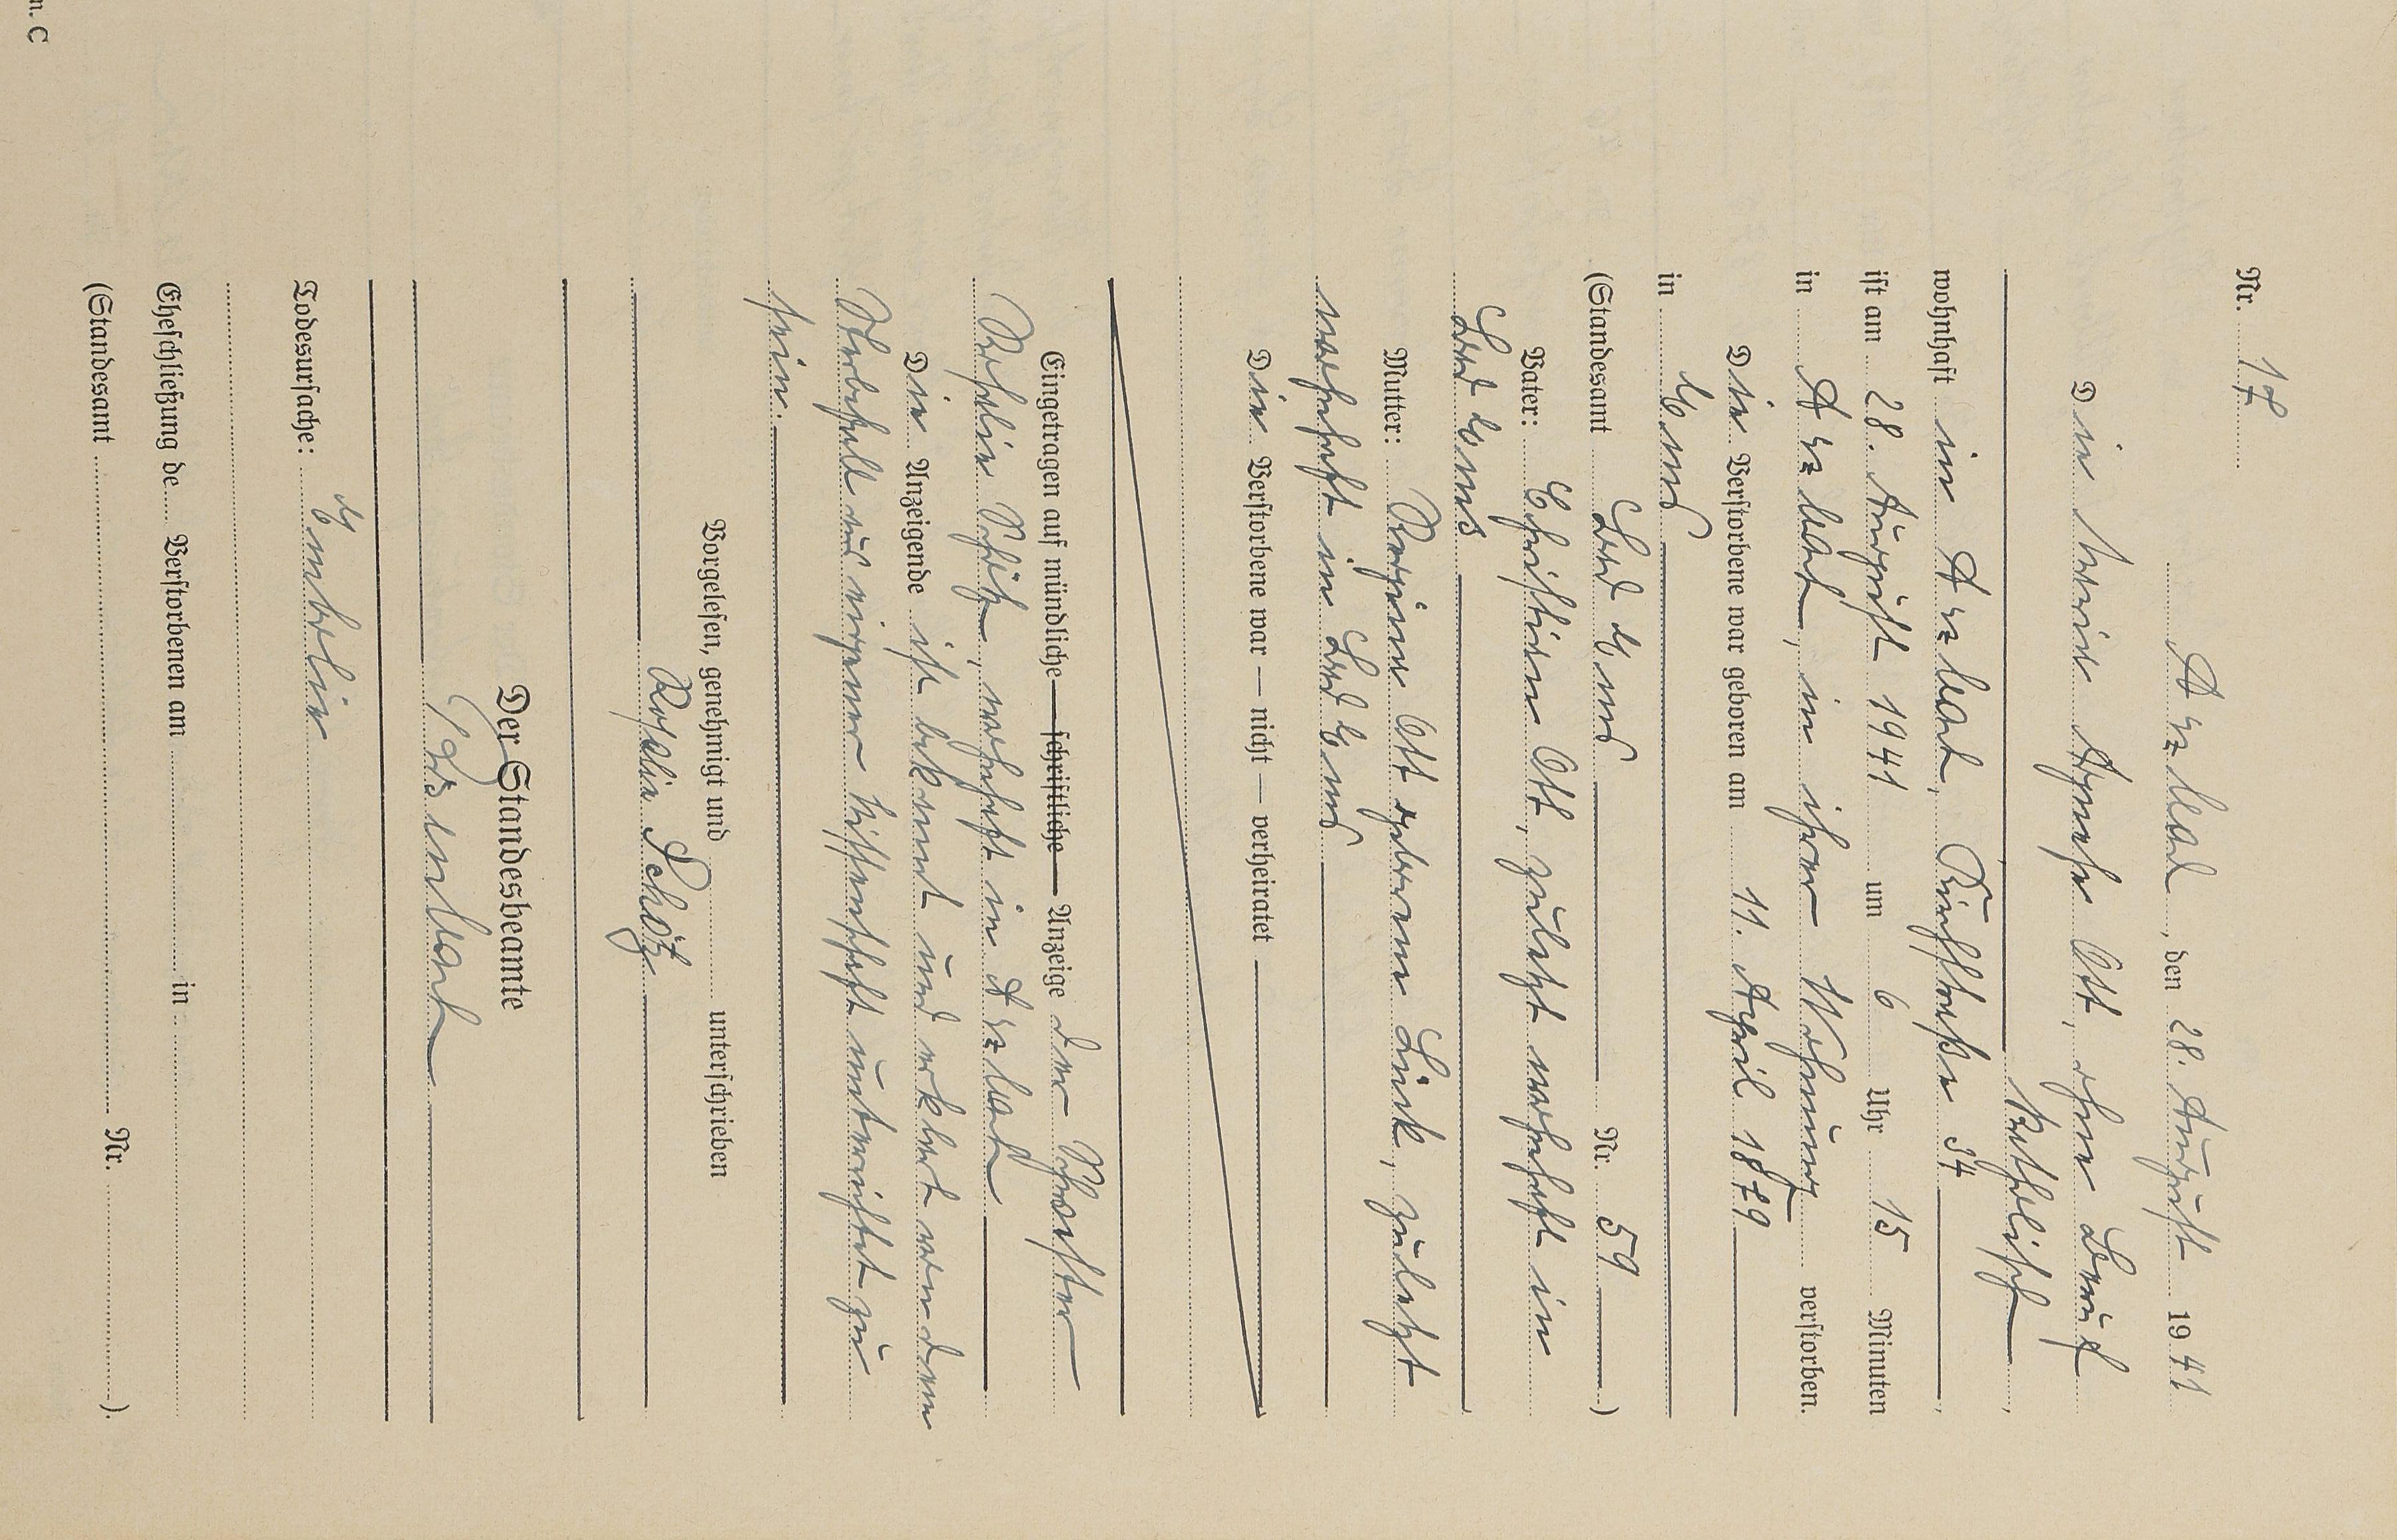 Nr. 17
Arzbach, den 28. August 1941
Die Maria Agnes Ott, ohne Beruf
katholisch
wohnhaft in Arzbach, Kirchstraße 54
ist am 28. August 1941 um 6 Uhr 15 Minuten
in Arzbach, in ihrer Wohnung verstorben.
Die Verstorbene war geboren am 11. April 1879
in Ems
(Standesamt Bad Ems Nr. 59)
Vater: Christian Ott, zuletzt wohnhaft in
Bad Ems
Mutter: Ott geborene zuletzt
wohnhaft in Bad Ems
Die Verstorbene war — nicht — verheiratet
Eingetragen auf mündliche — schriftliche — Anzeige der Schwester
Rosalie Schötz, wohnhaft in Arzbach
Die Anzeigende ist bekannt und erklärt von dem
Sterbefall aus eigener Wissenschaft unterrichtet zu
sein.
Vorgelesen, genehmigt und unterschrieben
Rosalie Schötz
Der Standesbeamte
Todesursache: Embolie
Eheschließung de Verstorbenen am in
(Standesamt Nr. ).
n. C